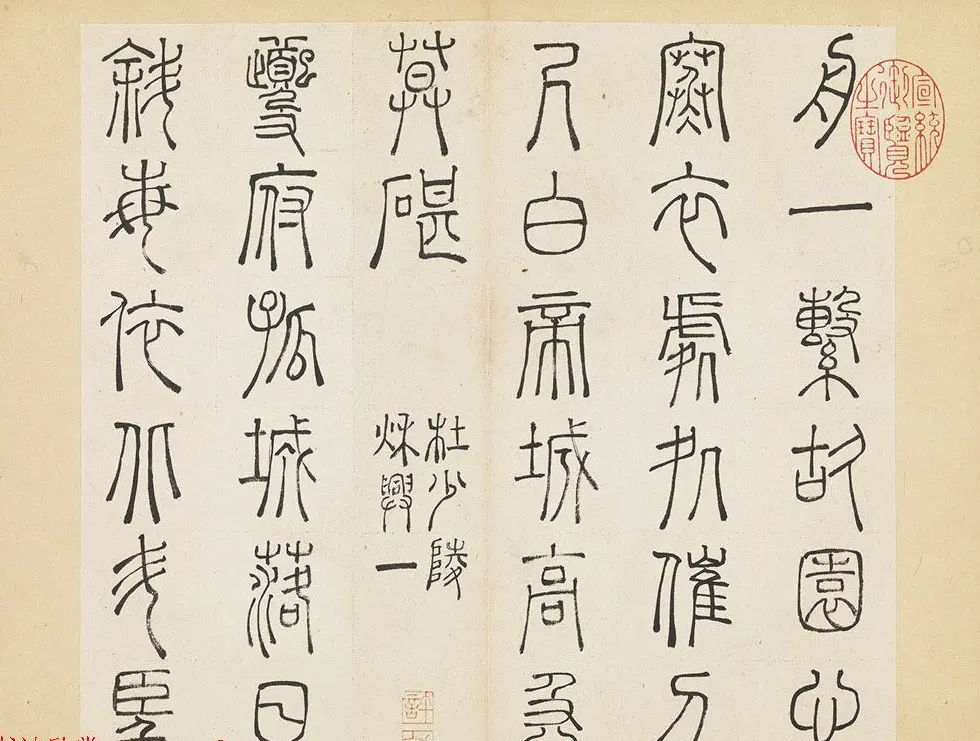 舟一繫故園心
寒衣處處催刀
尺白帝城高急
暮砧
杜少陵
秋興一
夔府孤城落日
斜每依北斗望
宣統御覽之寶